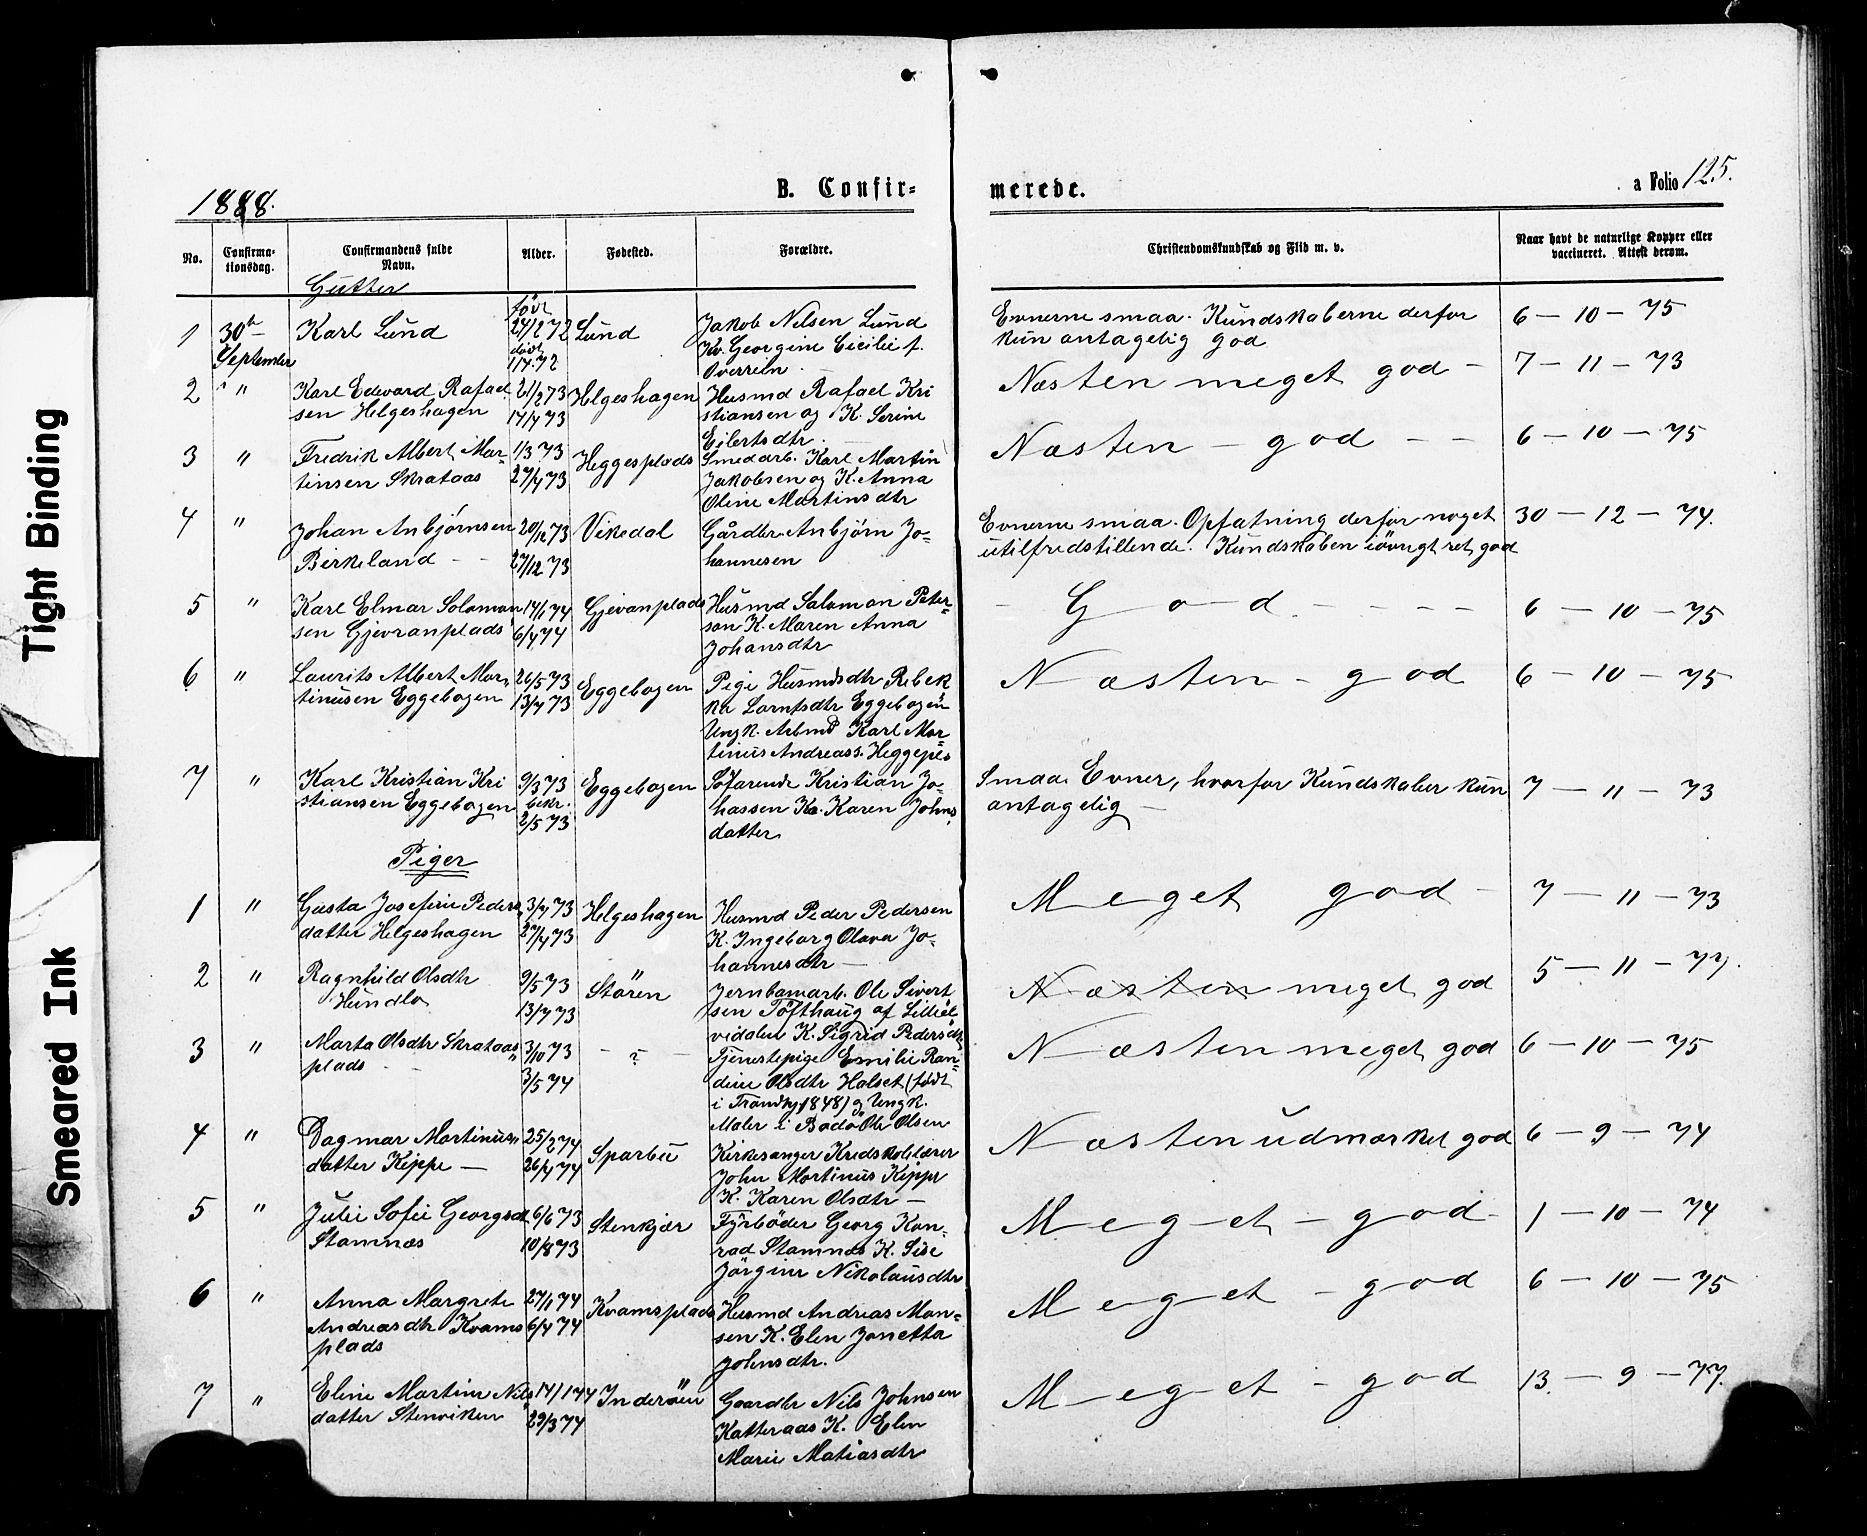 Tight Binding
Smeared Ink
1888.
B. Confir=
merede.
a Folio 125.
No.
Confirma-
tionsdag.
Confirmandens fulde
Navn.
Alder.
Fødested.
Forældre.
Christendomskundskab og Flid m. v.
Naar havt de naturlige Kopper eller
vaccineret. Attest derom.
Gutter
1
30te
September
Karl Lund
født
24/2 72
døbt
1/4 72
Lund
Jakob Nilsen Lund
Kv. Georgine Cicilie f.
Overrein
Evnerne smaa. Kundskaberne derfor
kun antagelig god
6 – 10 – 75
2
"
Karl Edevard Rafael
sen Helgeshagen
21/2 73
14/4 73
Helgeshagen
Husmd Rafael Kri
stiansen og K. Serine
Eilertsdtr.
Næsten meget god –
7 – 11 – 73
3
"
Fredrik Albert Mar-
tinsen Skrataas
1/3 73
27/4 73
Heggesplads
Smedarb. Karl Martin
Jakobsen og K. Anna
Oline Martinsdtr
Næsten – god – –
6 – 10 – 75
4
"
Johan Anbjørnsen
Birkeland – –
20/12 73
27/12 73
Vikedal
Gårdbr. Anbjørn Jo-
hannesen
Evnerne smaa. Opfatning derfor noget
utilfredstillende. Kundskaben iøvrigt ret god
30 – 12 – 74.
5
"
Karl Elmar Solomon
sen Gjevranplads
14/1 74
6/4 74
Gjevanplads
Husmd Salomon Peter-
son K. Maren Anna
Johansdtr
– G o d – – – –
6 – 10 – 75
6
"
Laurits Albert Mar-
tinusen Eggebogen
26/5 73
13/7 73
Eggebogen
Pige Husmdsdtr Rebek
ka Larntsdtr Eggebogen
Ungk. Arbmd Karl Mar-
tinus Andreass. Heggepls
Næsten – god
6 – 10 – 75
7
"
Karl Kristian Kri
stiansen Eggebogen
9/3 73
bekr.
2/5 73
Eggebogen
Søfarende Kristian Jo-
hassen K. Karen Johns
datter
Smaae Evner, hvorfor Kundskaber kun
antagelig –
7 – 11 – 73
Piger
1
"
Gusta Josefine Peders
datter Helgeshagen
3/4 73
27/4 73
Helgeshagen
Husmd Peder Pedersen
K. Ingeborg Olava Jo-
hannesdtr –
Meget god –
7 – 11 – 73
2
"
Ragnhild Olsdtr
Hundlo
9/5 73
13/7 73
Støren
Jernbanearb. Ole Sivert
sen Tofthaug af Lilleel
vidalen K. Sigrid Pedersdtr
Næsten meget god
5 – 11 – 77.
3
"
Marta Olsdtr Skrataas
plads
3/10 73
3/5 74
– ? –
Tjenestepige Emilie Ran-
dine Olsdtr Halset (født
i Trondhj 1848) og Ungk.
Maler i Bodø Ole Olsen
Næsten meget god
6 – 10 – 75
4
"
Dagmar Martinus
datter Kippe –
25/2 74
26/4 74
Sparbu
Kirkesanger Kredskolelærer
John Martinus Kippe
K. Karen Olsdtr –
Næsten udmærket god
6 – 9 – 74
5
"
Julie Sofie Georgsdtr
Stamnæs
6/6 73
10/8 73
Stenkjær
Fyrbøder Georg Kon-
rad Stamnæs K. Sise
Jørgine Nikolausdtr
Meget – god –
1 – 10 – 74
6
"
Anna Margrete
Andreasdtr Kvams
plads
27/1 74
6/4 74
Kvamsplads
Husmd Andreas Mon-
sen K. Elen Jonetta
Johnsdtr.
Meget – god
6 – 10 – 75
7
"
Eline Martine Nils
datter Stenviken
14/1 74
29/3 74
Inderøen
Gaardbr Nils Johnsen
Katteraas K. Elen
Marie Matiasdtr
Meget – god
13. – 9 – 77.